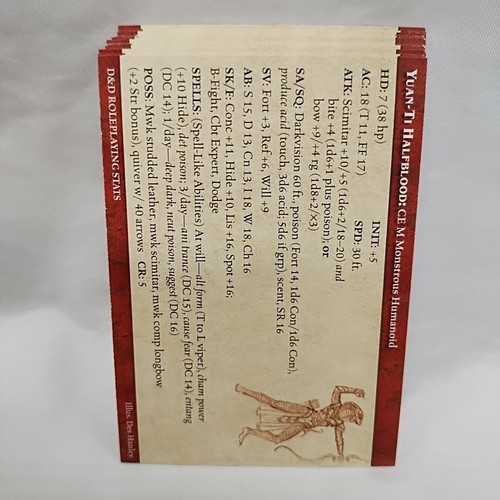 YUAN-TI HALFBLOOD: CE M Monstrous Humanoid
HD: 7 (38 hp) INIT: +5
AC: 18 (T 11, FF 17) SPD: 30 ft.
ATK: Scimitar +10/+5 (1d6+2/18–20) and
bite +4 (1d6+1 plus poison); or
bow +9/+4 rg (1d8+2/×3)
SA/SQ: Darkvision 60 ft., poison (Fort 14, 1d6 Con/1d6 Con),
produce acid (touch, 3d6 acid; 5d6 if grp), scent, SR 16
SV: Fort +3, Ref +6, Will +9
AB: S 15, D 13, Cn 13, I 18, W 18, Ch 16
SK/F: Conc +11, Hide +10, Lis +16, Spot +16;
B-Fight, Cbt Expert, Dodge
SPELLS: (Spell-Like Abilities) At will—alt form (T to L viper), cham power
(+10 Hide), det poison; 3/day—ani trance (DC 15), cause fear (DC 14), entang
(DC 14); 1/day—deep dark, neut poison, suggest (DC 16)
POSS: Mwk studded leather, mwk scimitar, mwk comp longbow
(+2 Str bonus), quiver w/ 40 arrows CR: 5
D&D ROLEPLAYING STATS
Illus. Des Hanley